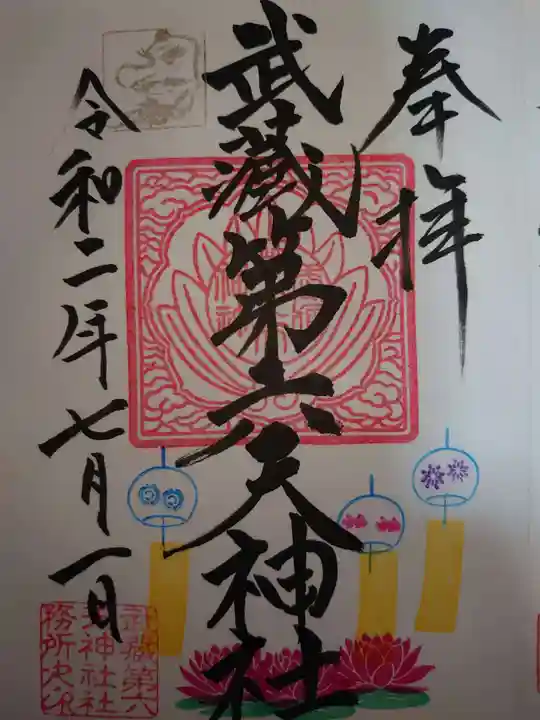 奉拝
武蔵第六天神社
令和二年七月一日
武蔵第六
天神社社
務所之印